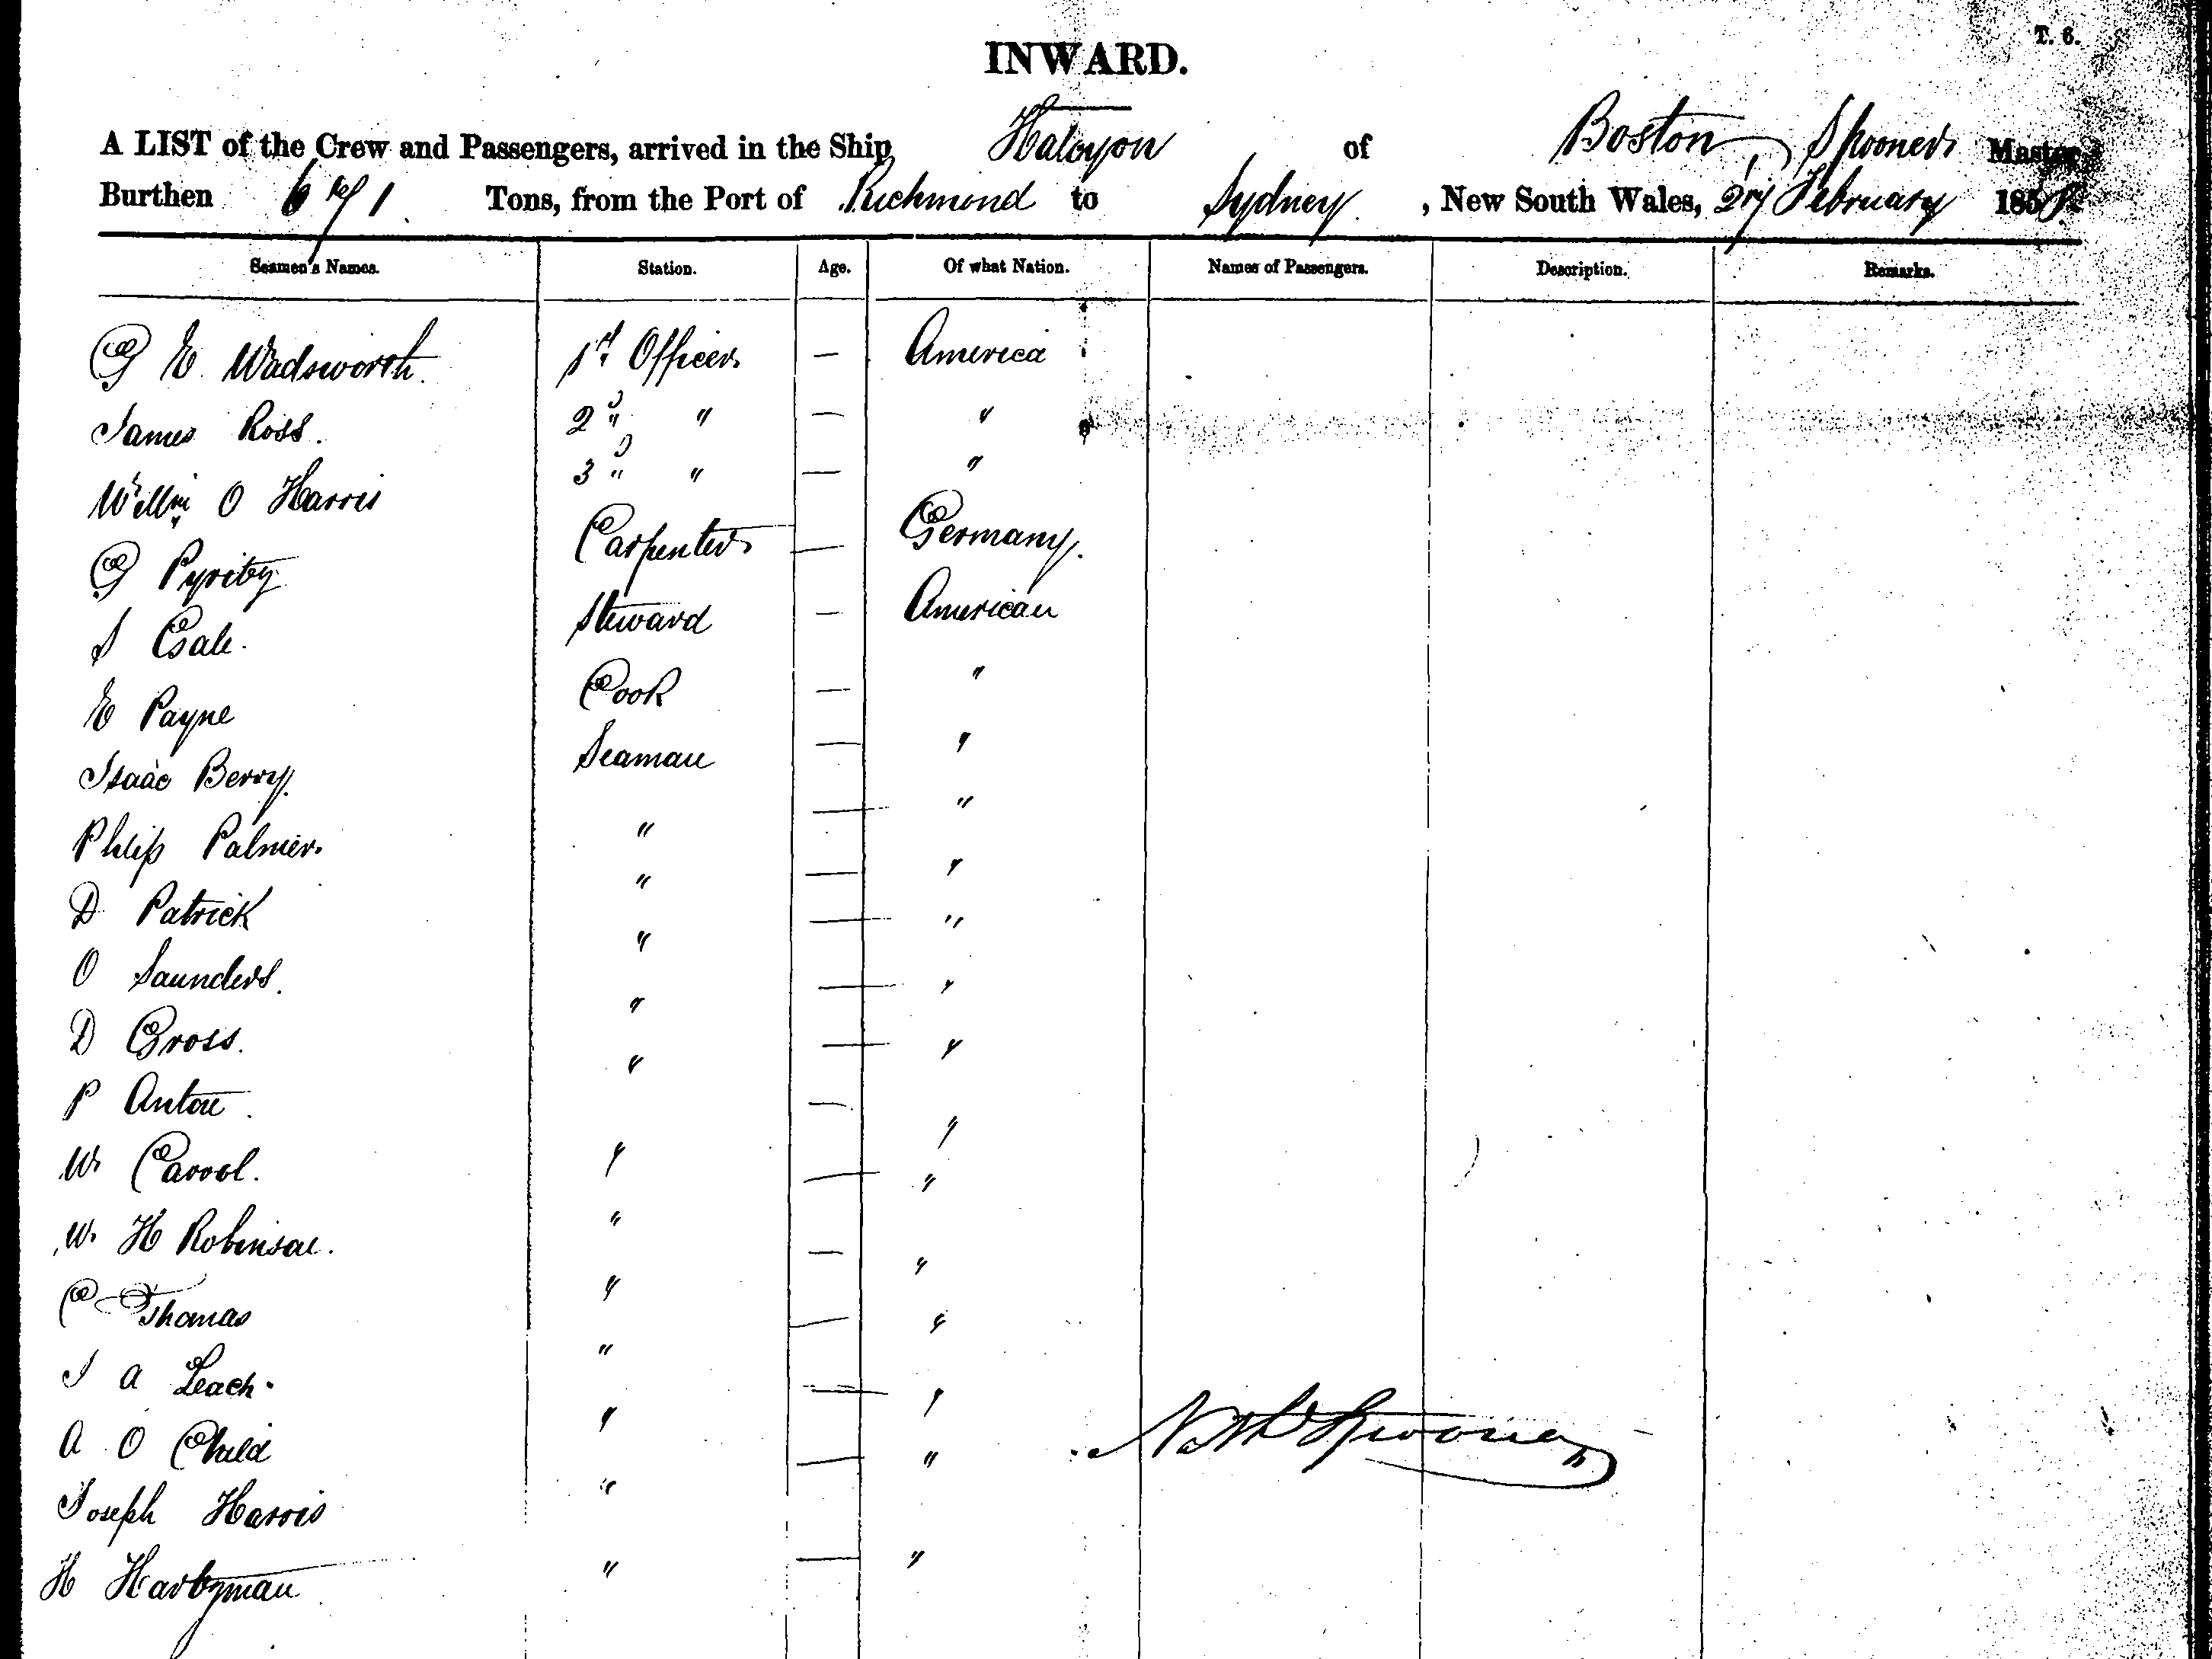 T. 6.
INWARD.
A LIST of the Crew and Passengers, arrived in the Ship Halcyon of Boston, Spooner Master
Burthen 671 Tons, from the Port of Richmond to Sydney, New South Wales, 27 February 1858
Seamen's Names. Station. Age. Of what Nation. Names of Passengers. Description. Remarks.
G E Wadsworth. 1st Officer — America
James Ross. 2d " " — "
Willm O Harris 3d " " — "
G Carpenter — Germany.
S Steward — American
E Payne Cook — "
Isaac Berry. Seaman — "
Phlip Palmer. " — "
D Patrick " — "
O Saunders. " — "
D Gross. " — "
P Anton. " — "
W Carrol. " — "
W. H Robinson. " — "
C Thomas " — "
J A Leach. " — "
A O Child " — "
Joseph Harris " — "
H " — "
Spooner